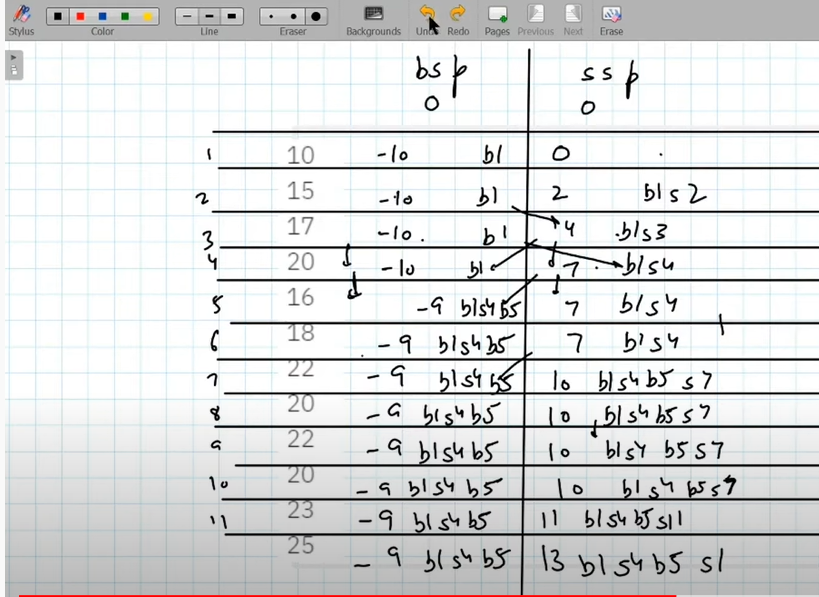 Stylus Color Line Eraser Backgrounds Undo Redo Pages Previous Next Erase
bsp ssp
0 0
1 10 -10 b1 0 .
2 15 -10 b1 2 b1s2
3 17 -10. b1 4 .b1s3
4 20 -10 b1. 7. b1s4
5 16 -9 b1s4b5 7 b1s4
6 18 -9 b1s4b5 7 b1s4
7 22 -9 b1s4b5 10 b1s4b5 s7
8 20 -9 b1s4b5 10 b1s4b5s7
9 22 -9 b1s4b5 10 b1s4 b5s7
10 20 -9 b1s4 b5 10 b1s4 b5s7
11 23 -9 b1s4b5 11 b1s4b5s11
25 -9 b1s4b5 13 b1s4b5 s1